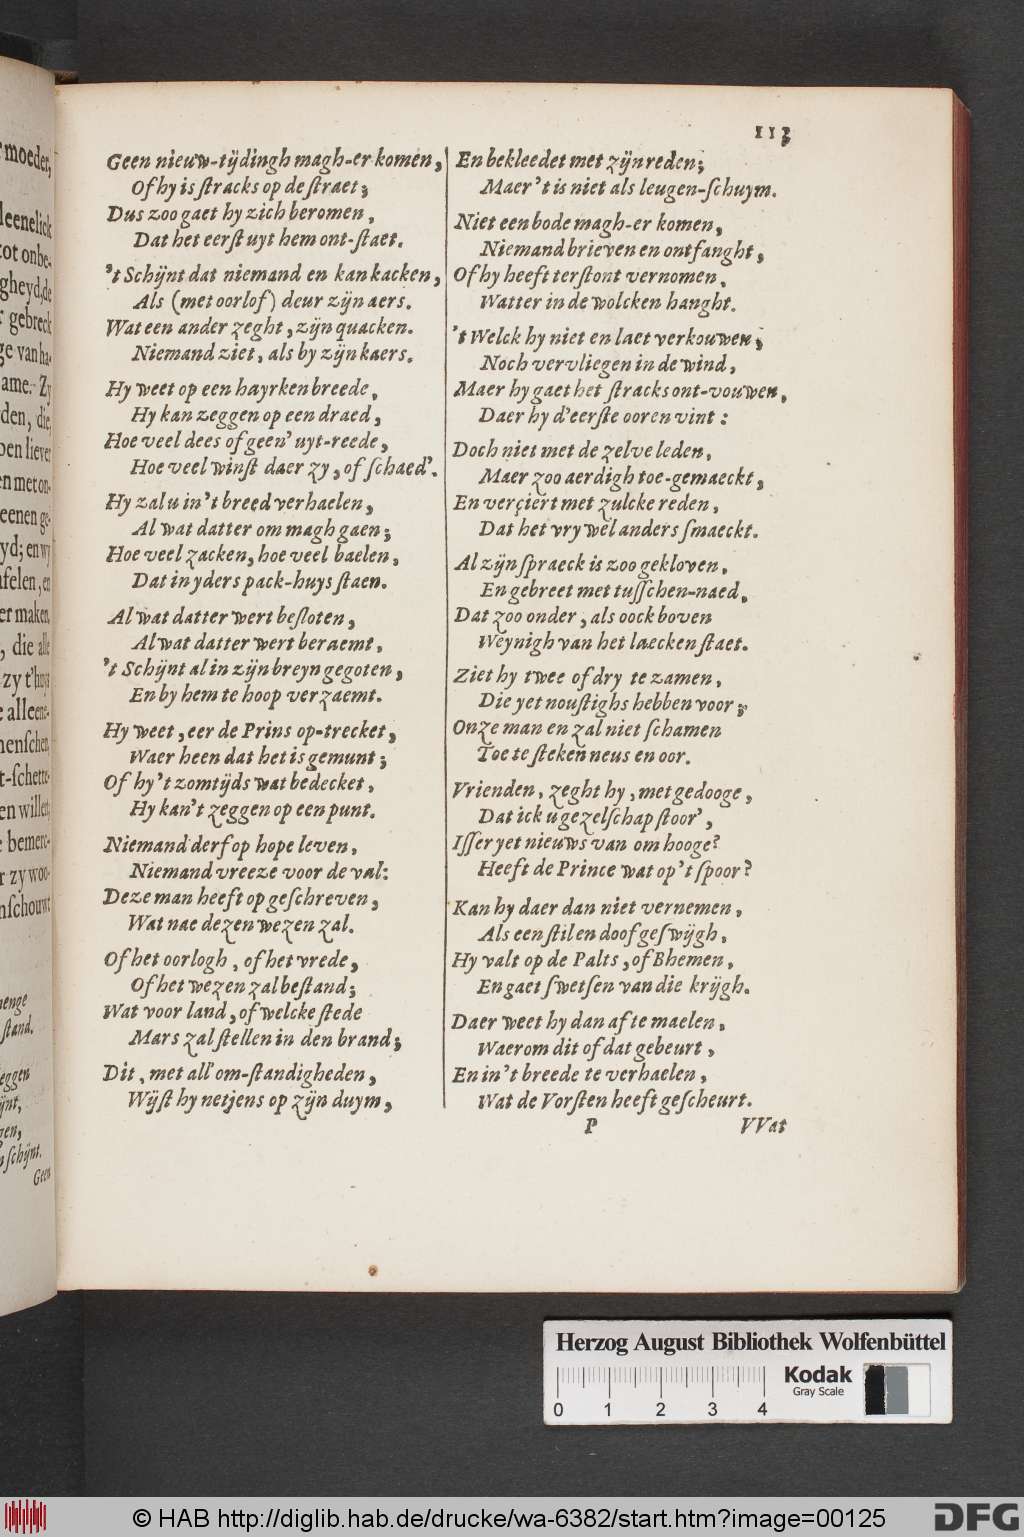 113
Geen nieuw-tijdingh magh-er komen,
Of hy is stracks op de straet;
Dus zoo gaet hy zich beromen,
Dat het eerst uyt hem ont-staet.
't Schijnt dat niemand en kan kacken,
Als (met oorlof) deur zijn aers.
Wat een ander zeght, zijn quacken.
Niemand ziet, als by zijn kaers.
Hy weet op een hayrken breede,
Hy kan zeggen op een draed,
Hoe veel dees of geen' uyt-reede,
Hoe veel winst daer zy, of schaed'.
Hy zal u in 't breed verhaelen,
Al wat datter om magh gaen;
Hoe veel zacken, hoe veel baelen,
Dat in yders pack-huys staen.
Al wat datter wert besloten,
Al wat datter wert beraemt,
't Schijnt al in zijn breyn gegoten,
En by hem te hoop verzaemt.
Hy weet, eer de Prins op-trecket,
Waer heen dat het is gemunt;
Of hy 't zomtijds wat bedecket,
Hy kan 't zeggen op een punt.
Niemand derf op hope leven,
Niemand vreeze voor de val:
Deze man heeft op geschreven,
Wat nae dezen wezen zal.
Of het oorlogh, of het vrede,
Of het wezen zal bestand;
Wat voor land, of welcke stede
Mars zal stellen in den brand;
Dit, met all' om-standigheden,
Wijst hy netjens op zijn duym,
En bekleedet met zijn reden;
Maer 't is niet als leugen-schuym.
Niet een bode magh-er komen,
Niemand brieven en ontfanght,
Of hy heeft terstont vernomen,
Watter in de wolcken hanght.
't Welck hy niet en laet verkouwen;
Noch vervliegen in de wind,
Maer hy gaet het stracks ont-vouwen,
Daer hy d'eerste ooren vint:
Doch niet met de zelve leden,
Maer zoo aerdigh toe-gemaeckt,
En verçiert met zulcke reden,
Dat het vry wel anders smaeckt.
Al zijn spraeck is zoo gekloven,
En gebreet met tusschen-naed,
Dat zoo onder, als oock boven
Weynigh van het laecken staet.
Ziet hy twee of dry te zamen,
Die yet noustighs hebben voor;
Onze man en zal niet schamen
Toe te steken neus en oor.
Vrienden, zeght hy, met gedooge,
Dat ick u gezelschap stoor',
Isser yet nieuws van om hooge?
Heeft de Prince wat op 't spoor?
Kan hy daer dan niet vernemen,
Als een stil en doof geswijgh,
Hy valt op de Palts, of Bhemen,
En gaet swetsen van die krijgh.
Daer weet hy dan af te maelen,
Waerom dit of dat gebeurt,
En in 't breede te verhaelen,
Wat de Vorsten heeft gescheurt.
P
VVat
moeder,
leenelick
tot onbe-
gheyd, de
gebreck
ge van ha-
ame. Zy
den, die
pen liever
en met on-
eenen ge-
yd; en wy
afelen, en
er maken,
, die alle
zy t'huys
e alleene-
menschen,
t-schette-
en willen
e bemerc-
r zy woo-
nschouwt
stand.
eggen
Geen
Herzog August Bibliothek Wolfenbüttel
Kodak
Gray Scale
0 1 2 3 4
© HAB http://diglib.hab.de/drucke/wa-6382/start.htm?image=00125
DFG